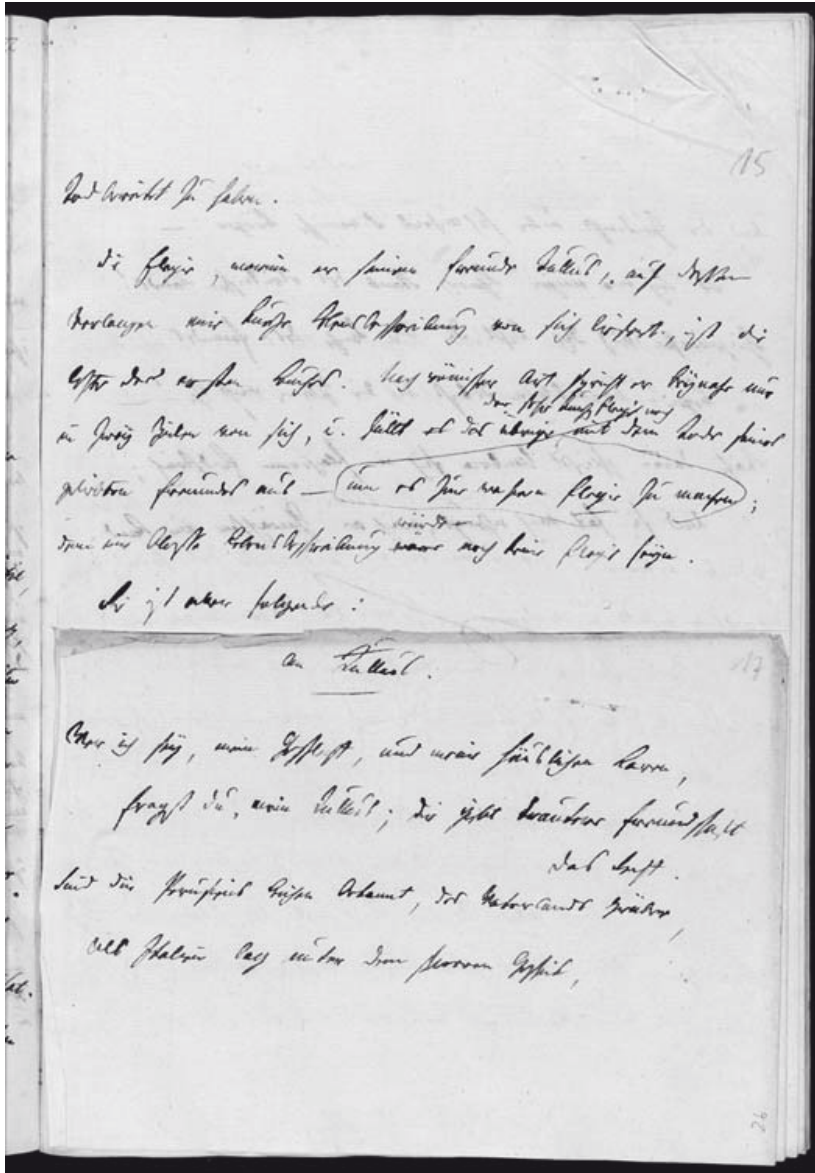 15
Tod bereitet zu haben.
Die Elegie, worin er seinem Freunde Tullus, auf dessen
Verlangen eine kurze Lebensbeschreibung von sich liefert, ist die
letzte des ersten Buches. Nach römischer Art spricht er beynahe nur
der sehr kurzen Elegie noch
in zwey Zeilen von sich, u. füllt das übrige mit dem Tode seines
geliebten Freundes aus — um es zur wahren Elegie zu machen;
würde
denn eine bloße Lebensbeschreibung wäre noch keine Elegie seyn.
Sie ist aber folgende:
17
An Tullus.
Wer ich sey, mein Geschlecht, und meine häuslichen Laren,
fragst du, mein Tullus; dir giebt trautere Freundschaft
das Recht.
Sind dir Perusiens Leichen bekannt, des Vaterlands Gräber,
als Italien lag unter dem herren Geschick,
26